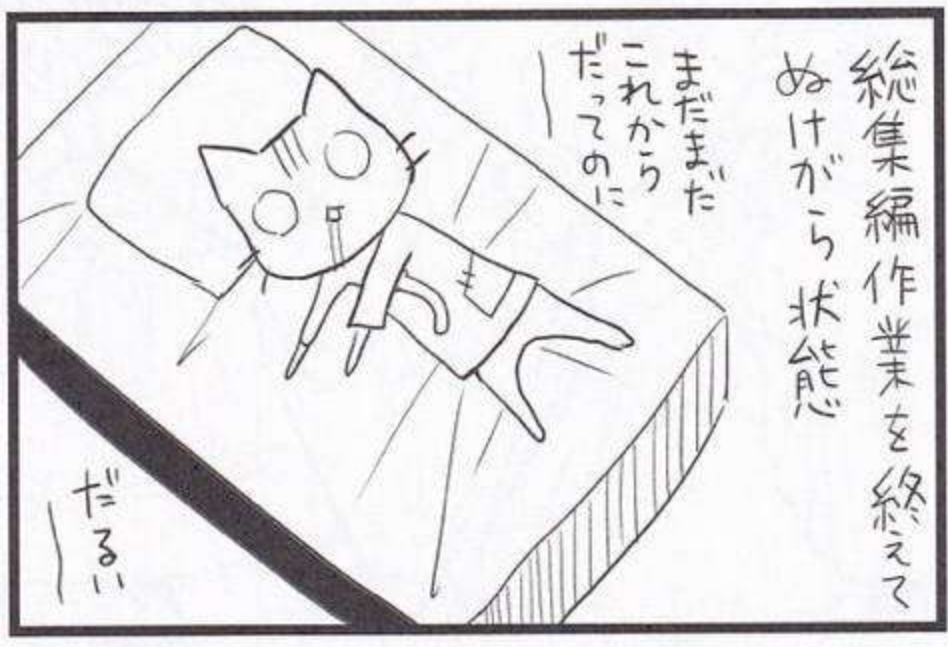 総集編作業を終えて
ぬけがら状態
まだまだ
これから
だってのに
だるい